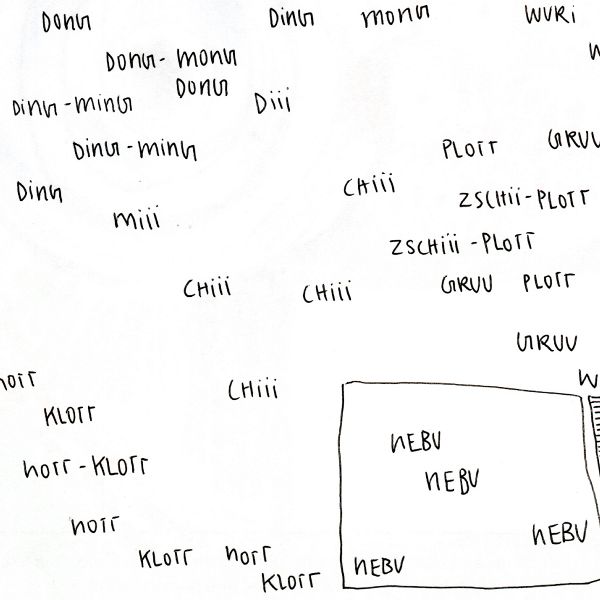 DONG DiNG MONG WURi
DONG - MONG
DONG
DiNG - MiNG Diii
DiNG - MiNG PLOTT GRUU
DiNG CHiii ZSCHii - PLOTT
Miii
ZSCHiii - PLOTT
CHiii CHiii GRUU PLOTT
GRUU
NOTT CHiii
KLOTT
NEBU
NOTT - KLOTT
NEBU
NOTT
NEBU
KLOTT NOTT
NEBU
KLOTT